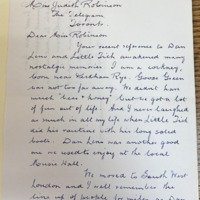 Miss Judith Robinson
The Telegram
Toronto.
Dear Miss Robinson
Your recent reference to Dan
Leno and Little Tich awakened many
nostalgic memories. I am a cockney,
born near Peckham Rye. Goose Green
was not too far away. We didn't have
much "beer + money" but we got a lot
of fun out of life. And I never laughed
as much in all my life when Little Tich
did his routine with his long soled
boots. Dan Leno was another good
one we used to enjoy at the local
Music Hall.
We moved to South West
London and I well remember the
line up of people for miles as Dan